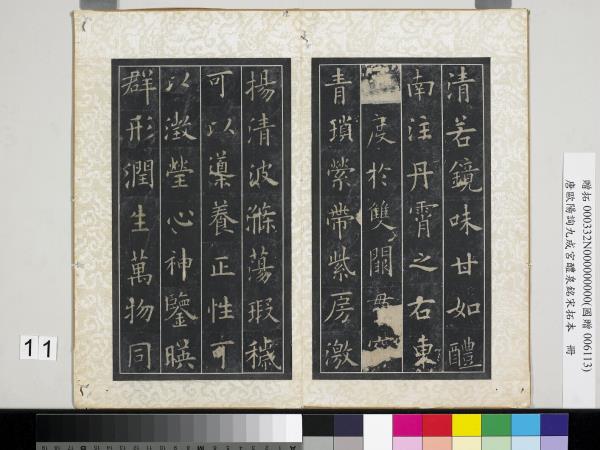 清若鏡味甘如醴
南注丹霄之右東
度於雙闕
青瑣縈帶紫房激
揚清波滌蕩瑕穢
可以導養正性可
以澂瑩心神鑒暎
群形潤生萬物同
贈拓 000332N000000000(國贈 006113)
唐歐陽詢九成宮醴泉銘宋拓本 冊
11